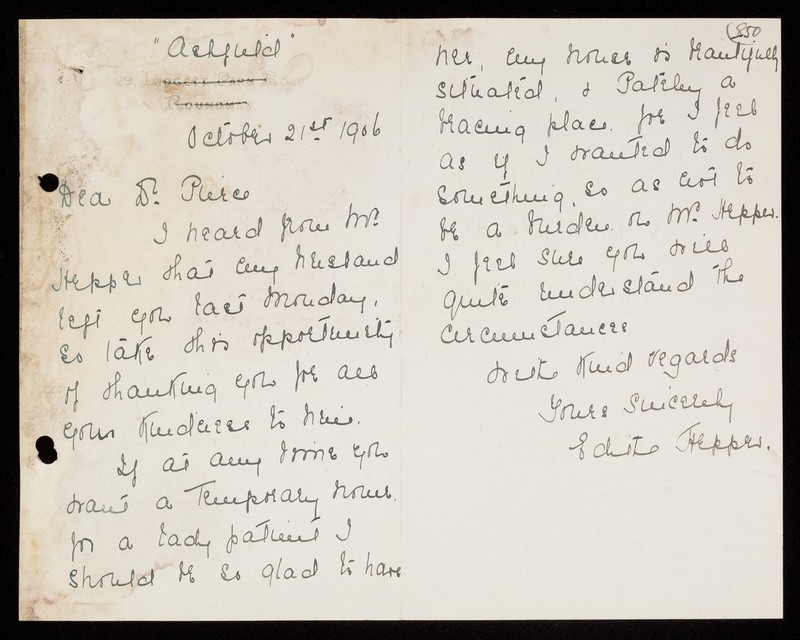 "Ashfield"
October 21st 1906
Dear Dr. Pierce
I heard from Mr.
Hepper that my husband
left you last Monday,
so take this opportunity
of thanking you for all
your kindness to him.
If at any time you
want a temporary home
for a lady patient I
should be so glad to have
850
her, my house is beautifully
situated, & Pateley a
bracing place. for I feel
as if I wanted to do
something, so as not to
be a burden on Mr. Hepper.
I feel sure you will
quite understand the
circumstances
With kind regards
Yours sincerely
Edith Hepper.